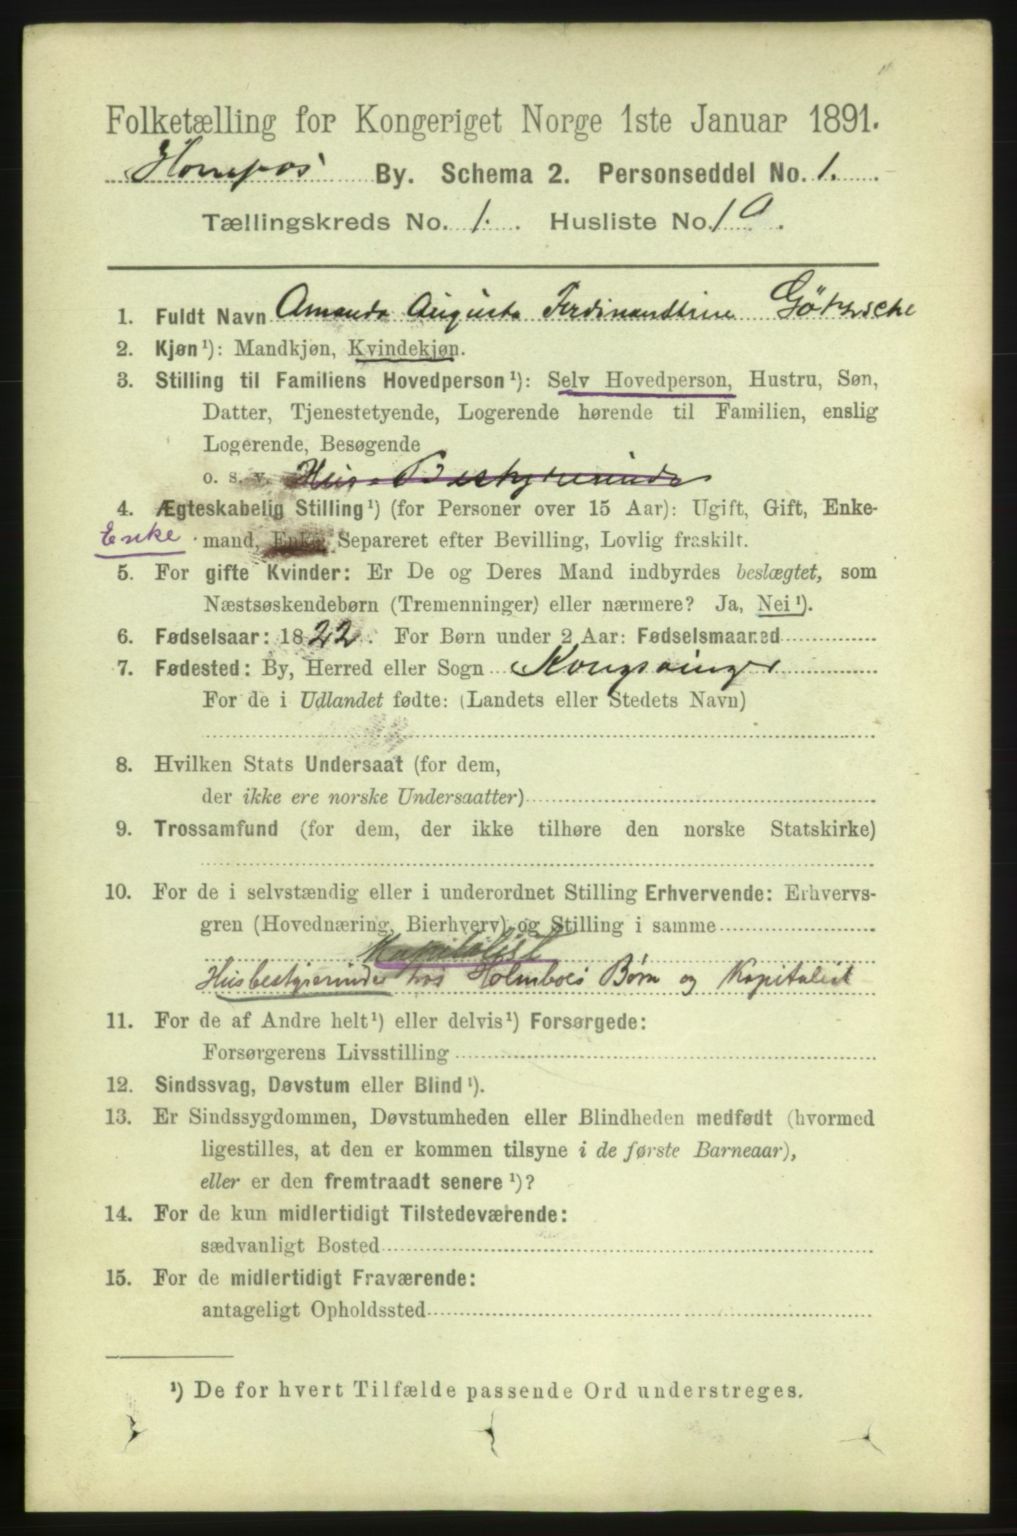 Folketælling for Kongeriget Norge 1ste Januar 1891.
Hønefos By. Schema 2. Personseddel No. 1.
Tællingskreds No. 1. Husliste No. 1 a.
1. Fuldt Navn Amanda Augusta Ferdinandtine Götzsche
2. Kjøn¹): Mandkjøn, Kvindekjøn.
3. Stilling til Familiens Hovedperson¹): Selv Hovedperson, Hustru, Søn,
Datter, Tjenestetyende, Logerende hørende til Familien, enslig
Logerende, Besøgende
o. s. v. Hus-Bestyrerinde
4. Ægteskabelig Stilling¹) (for Personer over 15 Aar): Ugift, Gift, Enke-
Enke mand, Enke, Separeret efter Bevilling, Lovlig fraskilt.
5. For gifte Kvinder: Er De og Deres Mand indbyrdes beslægtet, som
Næstsøskendebørn (Tremenninger) eller nærmere? Ja, Nei¹).
6. Fødselsaar: 1822. For Børn under 2 Aar: Fødselsmaaned
7. Fødested: By, Herred eller Sogn Kongsvinger
For de i Udlandet fødte: (Landets eller Stedets Navn)
8. Hvilken Stats Undersaat (for dem,
der ikke ere norske Undersaatter)
9. Trossamfund (for dem, der ikke tilhøre den norske Statskirke)
10. For de i selvstændig eller i underordnet Stilling Erhvervende: Erhvervs-
gren (Hovednæring, Bierhverv) og Stilling i samme
Kapitalist
Husbestyrerinde hos Holmboes Børn og Kapitalist
11. For de af Andre helt¹) eller delvis¹) Forsørgede:
Forsørgerens Livsstilling
12. Sindssvag, Døvstum eller Blind¹).
13. Er Sindssygdommen, Døvstumheden eller Blindheden medfødt (hvormed
ligestilles, at den er kommen tilsyne i de første Barneaar),
eller er den fremtraadt senere¹)?
14. For de kun midlertidigt Tilstedeværende:
sædvanligt Bosted
15. For de midlertidigt Fraværende:
antageligt Opholdssted
¹) De for hvert Tilfælde passende Ord understreges.